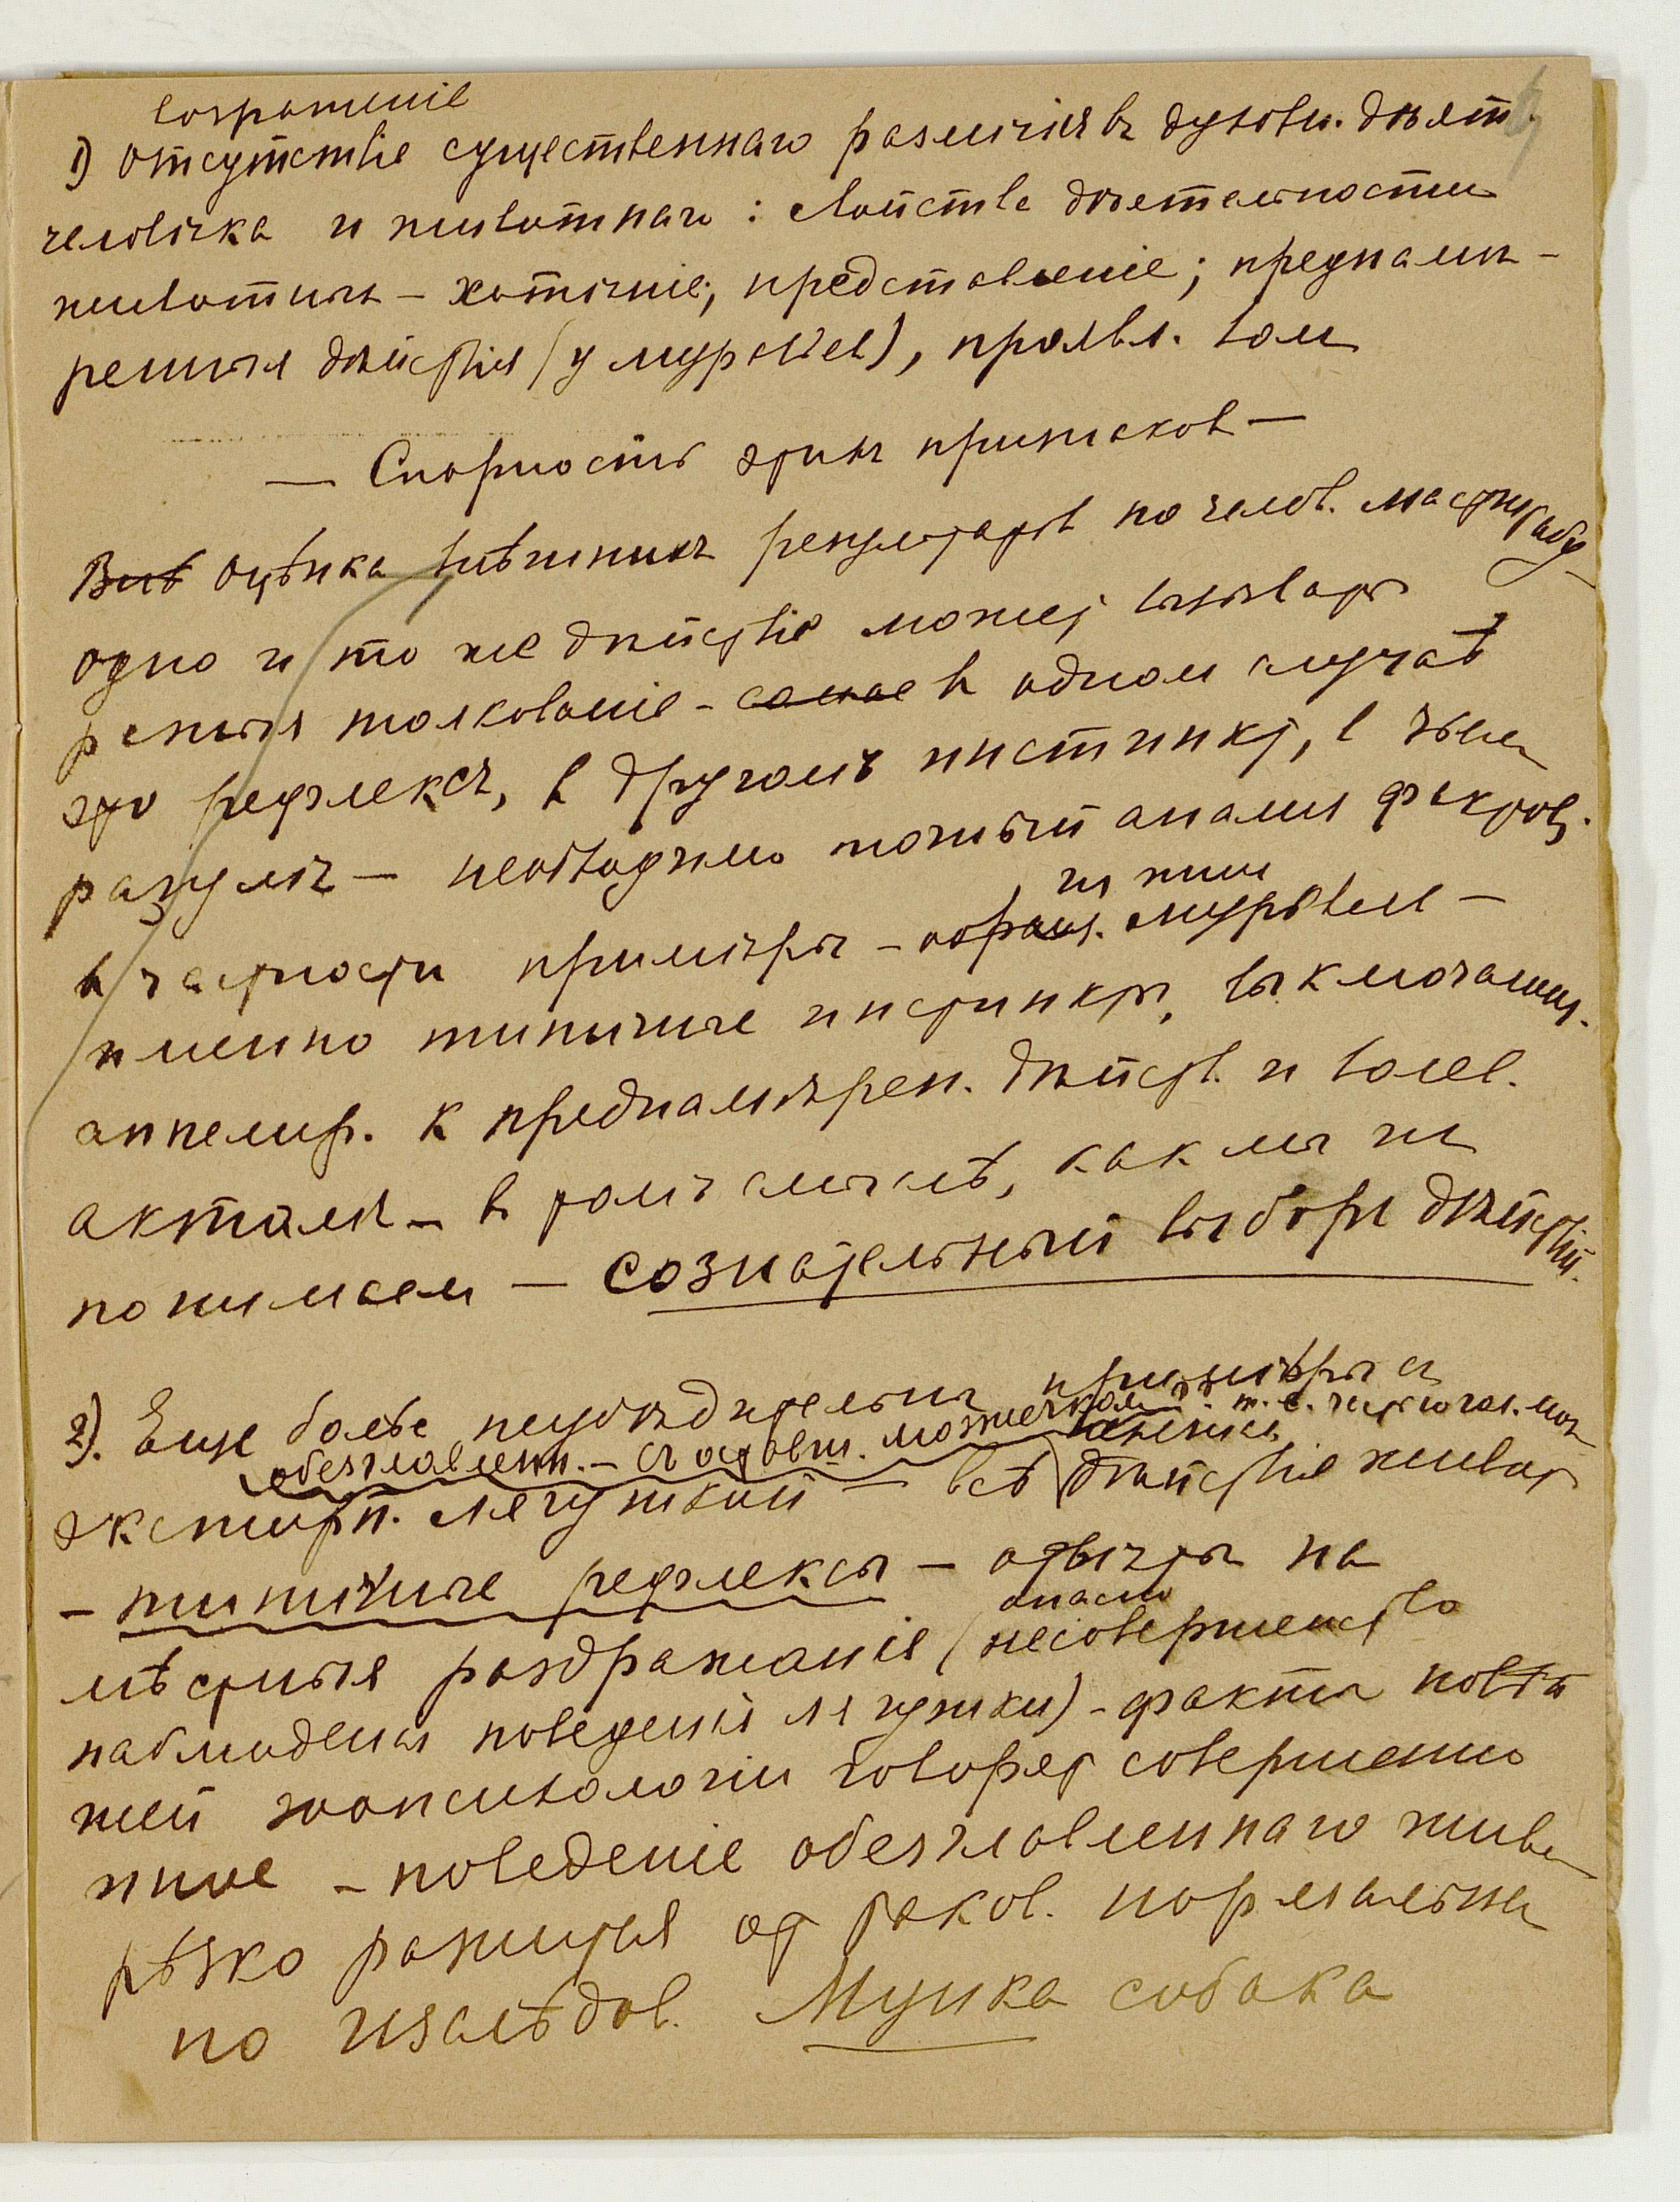 возражение
1) Отсутствіе существеннаго различія въ духовн. дѣят.
человѣка и животнаго: свойства дѣятельности
животныхъ – хотѣніе, представленіе; преднамѣ-
ренныя дѣйствія (у муравьев), проявл. воли
— Спорность этихъ признаков —
Внѣ оцѣнка внѣшнихъ результатов по челов. масштабу
одно и то же дѣйствіе может вызывать
разныя толкованіе – самое в одном случаѣ
это рефлексъ, в другомъ инстинкт, в
разумъ — необходимо точный анализ фактов.
в частности примѣры – муравьев —
именно типичные инстинкты, исключающ.
аппелир. к преднамѣрен. дѣйств. и волев.
актамъ – в томъ смыслѣ, как мы их
понимаем — сознательный выборъ дѣйствій.
2). Еще болѣе неубѣдительны примѣры съ
обезглавленн. – съ оставш. мозжечком т. е.
экстирп. лягушкой – всѣ дѣйствія живот
– типичные рефлексы – отвѣты на
мѣстныя раздраженія (несовершенство
наблюденія поведенія лягушки) – факты новѣй
шей зоопсихологіи говорят совершенно
иное – поведеніе обезглавленнаго живо
рѣзко разнится от таков. нормальных
по изслѣдов. Мунка собака